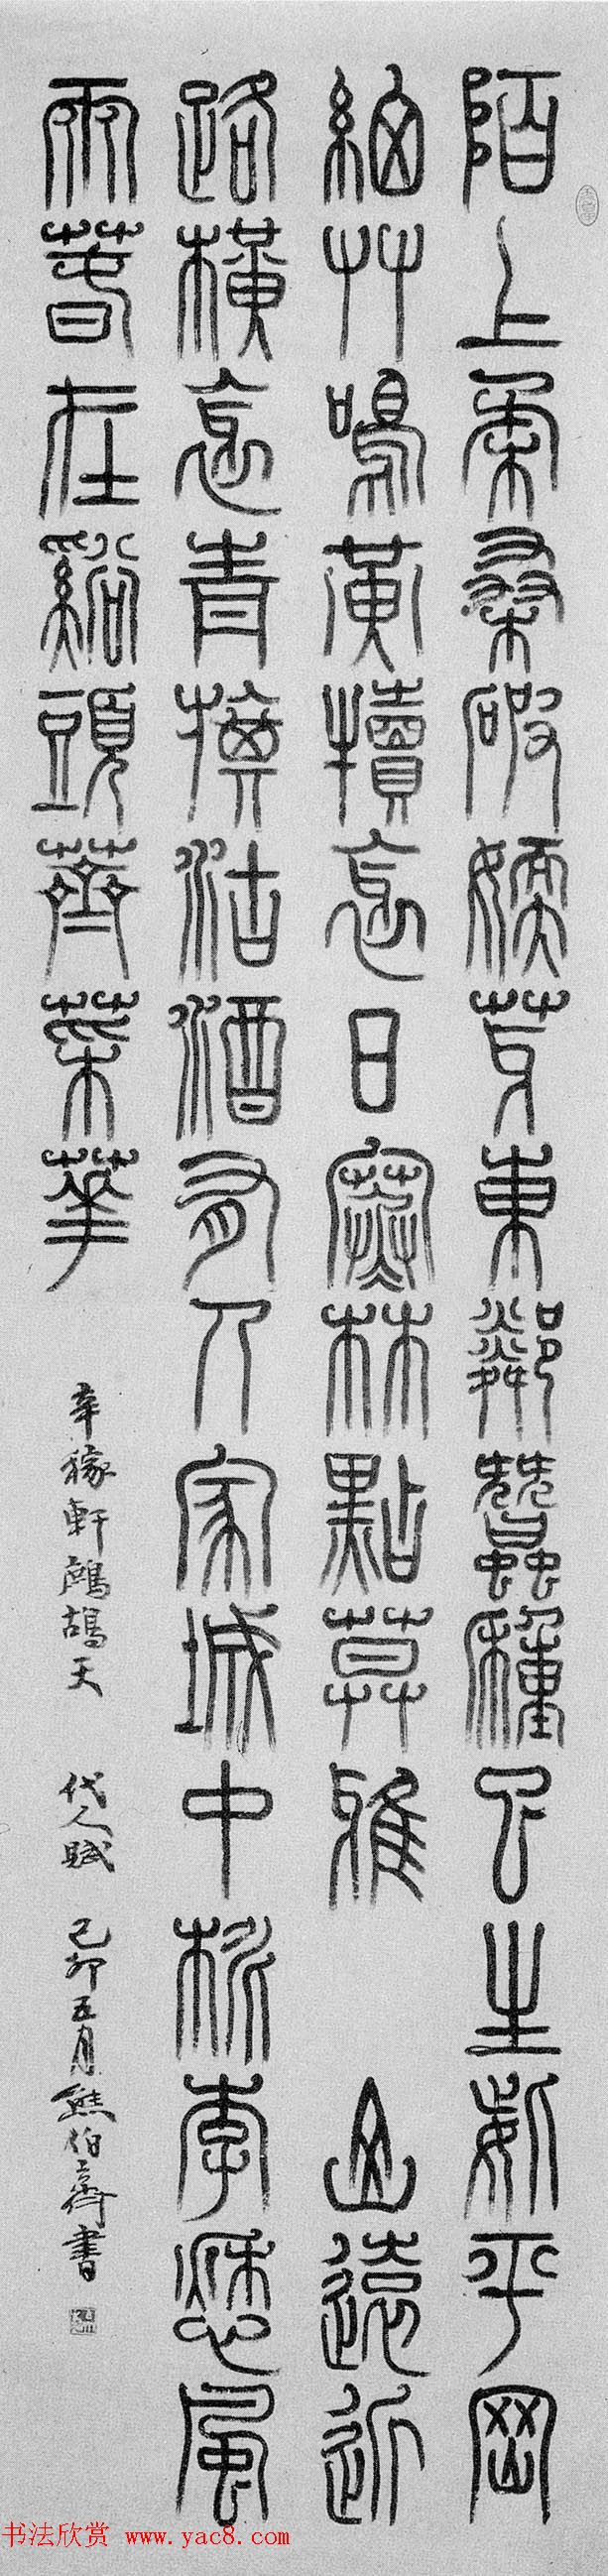 陌上柔桑破媆芽東鄰蠶種已生些平岡
細艸鳴黃犢衺日寒林點莫雅 山遠近
路橫衺青旗沽酒有人家城中桃李愁風
雨萅在谿頭薺菜華
辛稼軒鷓鴣天 代人賦 己卯五月熊伯齊書
书法欣赏 www.yac8.com